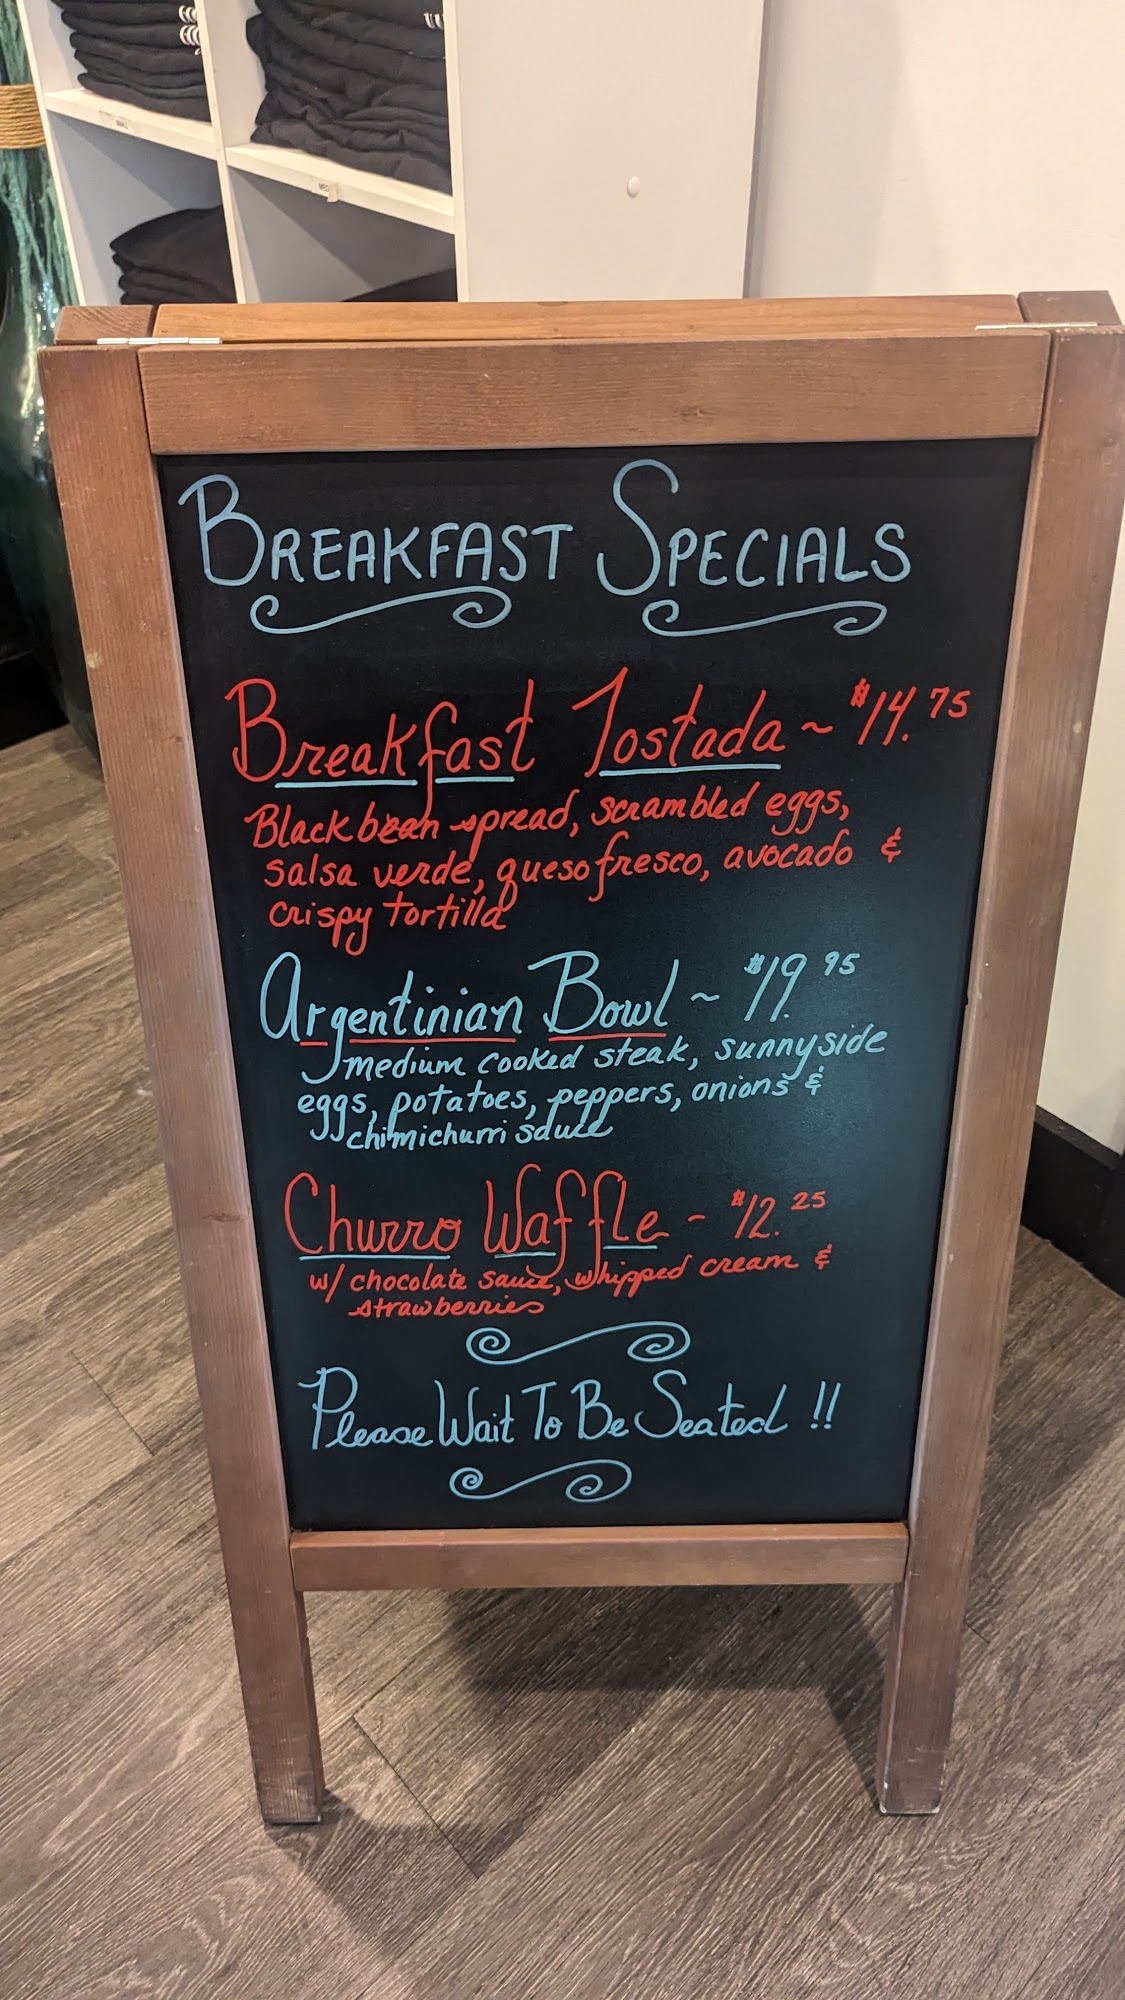 BREAKFAST SPECIALS
Breakfast Tostada ~ $14.75
Black bean spread, scrambled eggs,
salsa verde, queso fresco, avocado &
crispy tortilla
Argentinian Bowl ~ $19.95
medium cooked steak, sunnyside
eggs, potatoes, peppers, onions &
chimichurri sauce
Churro Waffle - $12.25
w/ chocolate sauce, whipped cream &
strawberries
Please Wait To Be Seated !!